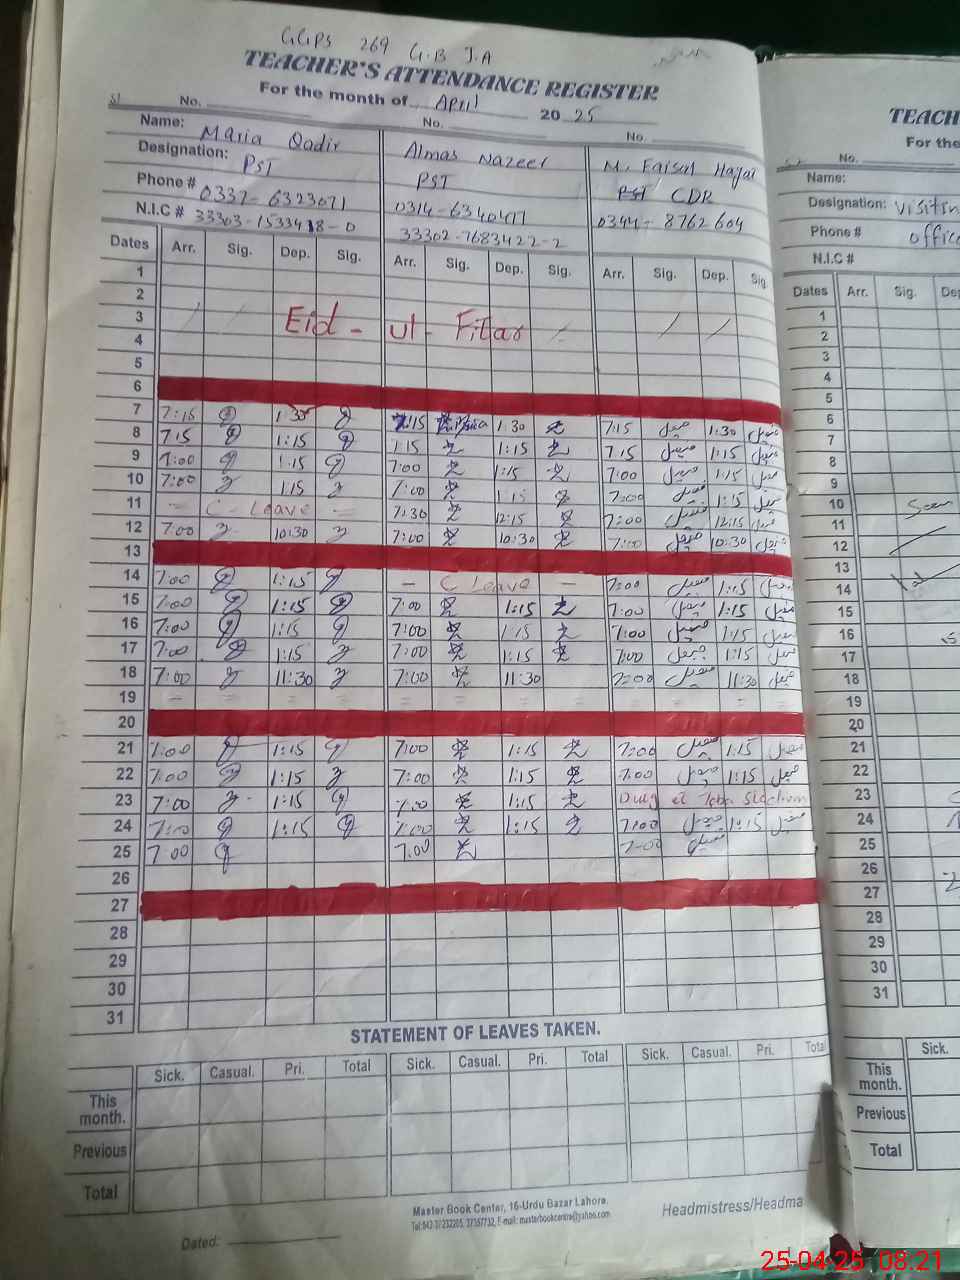 GGPS 269 G.B J.A
TEACHER'S ATTENDANCE REGISTER
For the month of April 2025
No. No. No.
Name: Maria Qadir Almas Nazeer M. Faisal
Designation: PST PST PST CDR
Phone # 0337-6323071 0314-6340417 0344-8762604
N.I.C # 33303-1533418-0 33302-7683422-2
Dates Arr. Sig. Dep. Sig. Arr. Sig. Dep. Sig. Arr. Sig. Dep. Sig.
1
2
3 Eid-ul-Fitar
4
5
6
7 7:15 1:30 7:15 1:30 7:15 1:30
8 7:15 1:15 1:15 1:15 7:15 1:15
9 7:00 1:15 7:00 1:15 7:00 1:15
10 7:00 1:15 7:00 1:15 7:00 1:15
11 - C-Leave = 7:30 12:15 7:00 12:15
12 7:00 10:30 7:00 10:30 7:00 10:30
13
14 7:00 1:15 - C Leave - 7:00 1:15
15 7:00 1:15 7:00 1:15 7:00 1:15
16 7:00 1:15 7:00 1:15 7:00 1:15
17 7:00 1:15 7:00 1:15 7:00 1:15
18 7:00 11:30 7:00 11:30 7:00 11:30
19 = = = = = = = = = = =
20
21 7:00 1:15 7:00 1:15 7:00 1:15
22 7:00 1:15 7:00 1:15 7:00 1:15
23 7:00 1:15 7:00 1:15 Duty at Toba
24 7:00 1:15 7:00 1:15 7:00 1:15
25 7:00 7:00 7:00
26
27
28
29
30
31
STATEMENT OF LEAVES TAKEN.
Sick. Casual. Pri. Total Sick. Casual. Pri. Total Sick. Casual. Pri. Total
This month.
Previous
Total
Master Book Center, 16-Urdu Bazar Lahore.
Headmistress/Headma
Dated:
TEACH
For the
No.
Name:
Designation: visitin
Phone # office
N.I.C #
Dates Arr. Sig. De
1
2
3
4
5
6
7
8
9
10
11
12
13
14
15
16
17
18
19
20
21
22
23
24
25
26
27
28
29
30
31
Sick.
This month.
Previous
Total
25-04-25 08:21